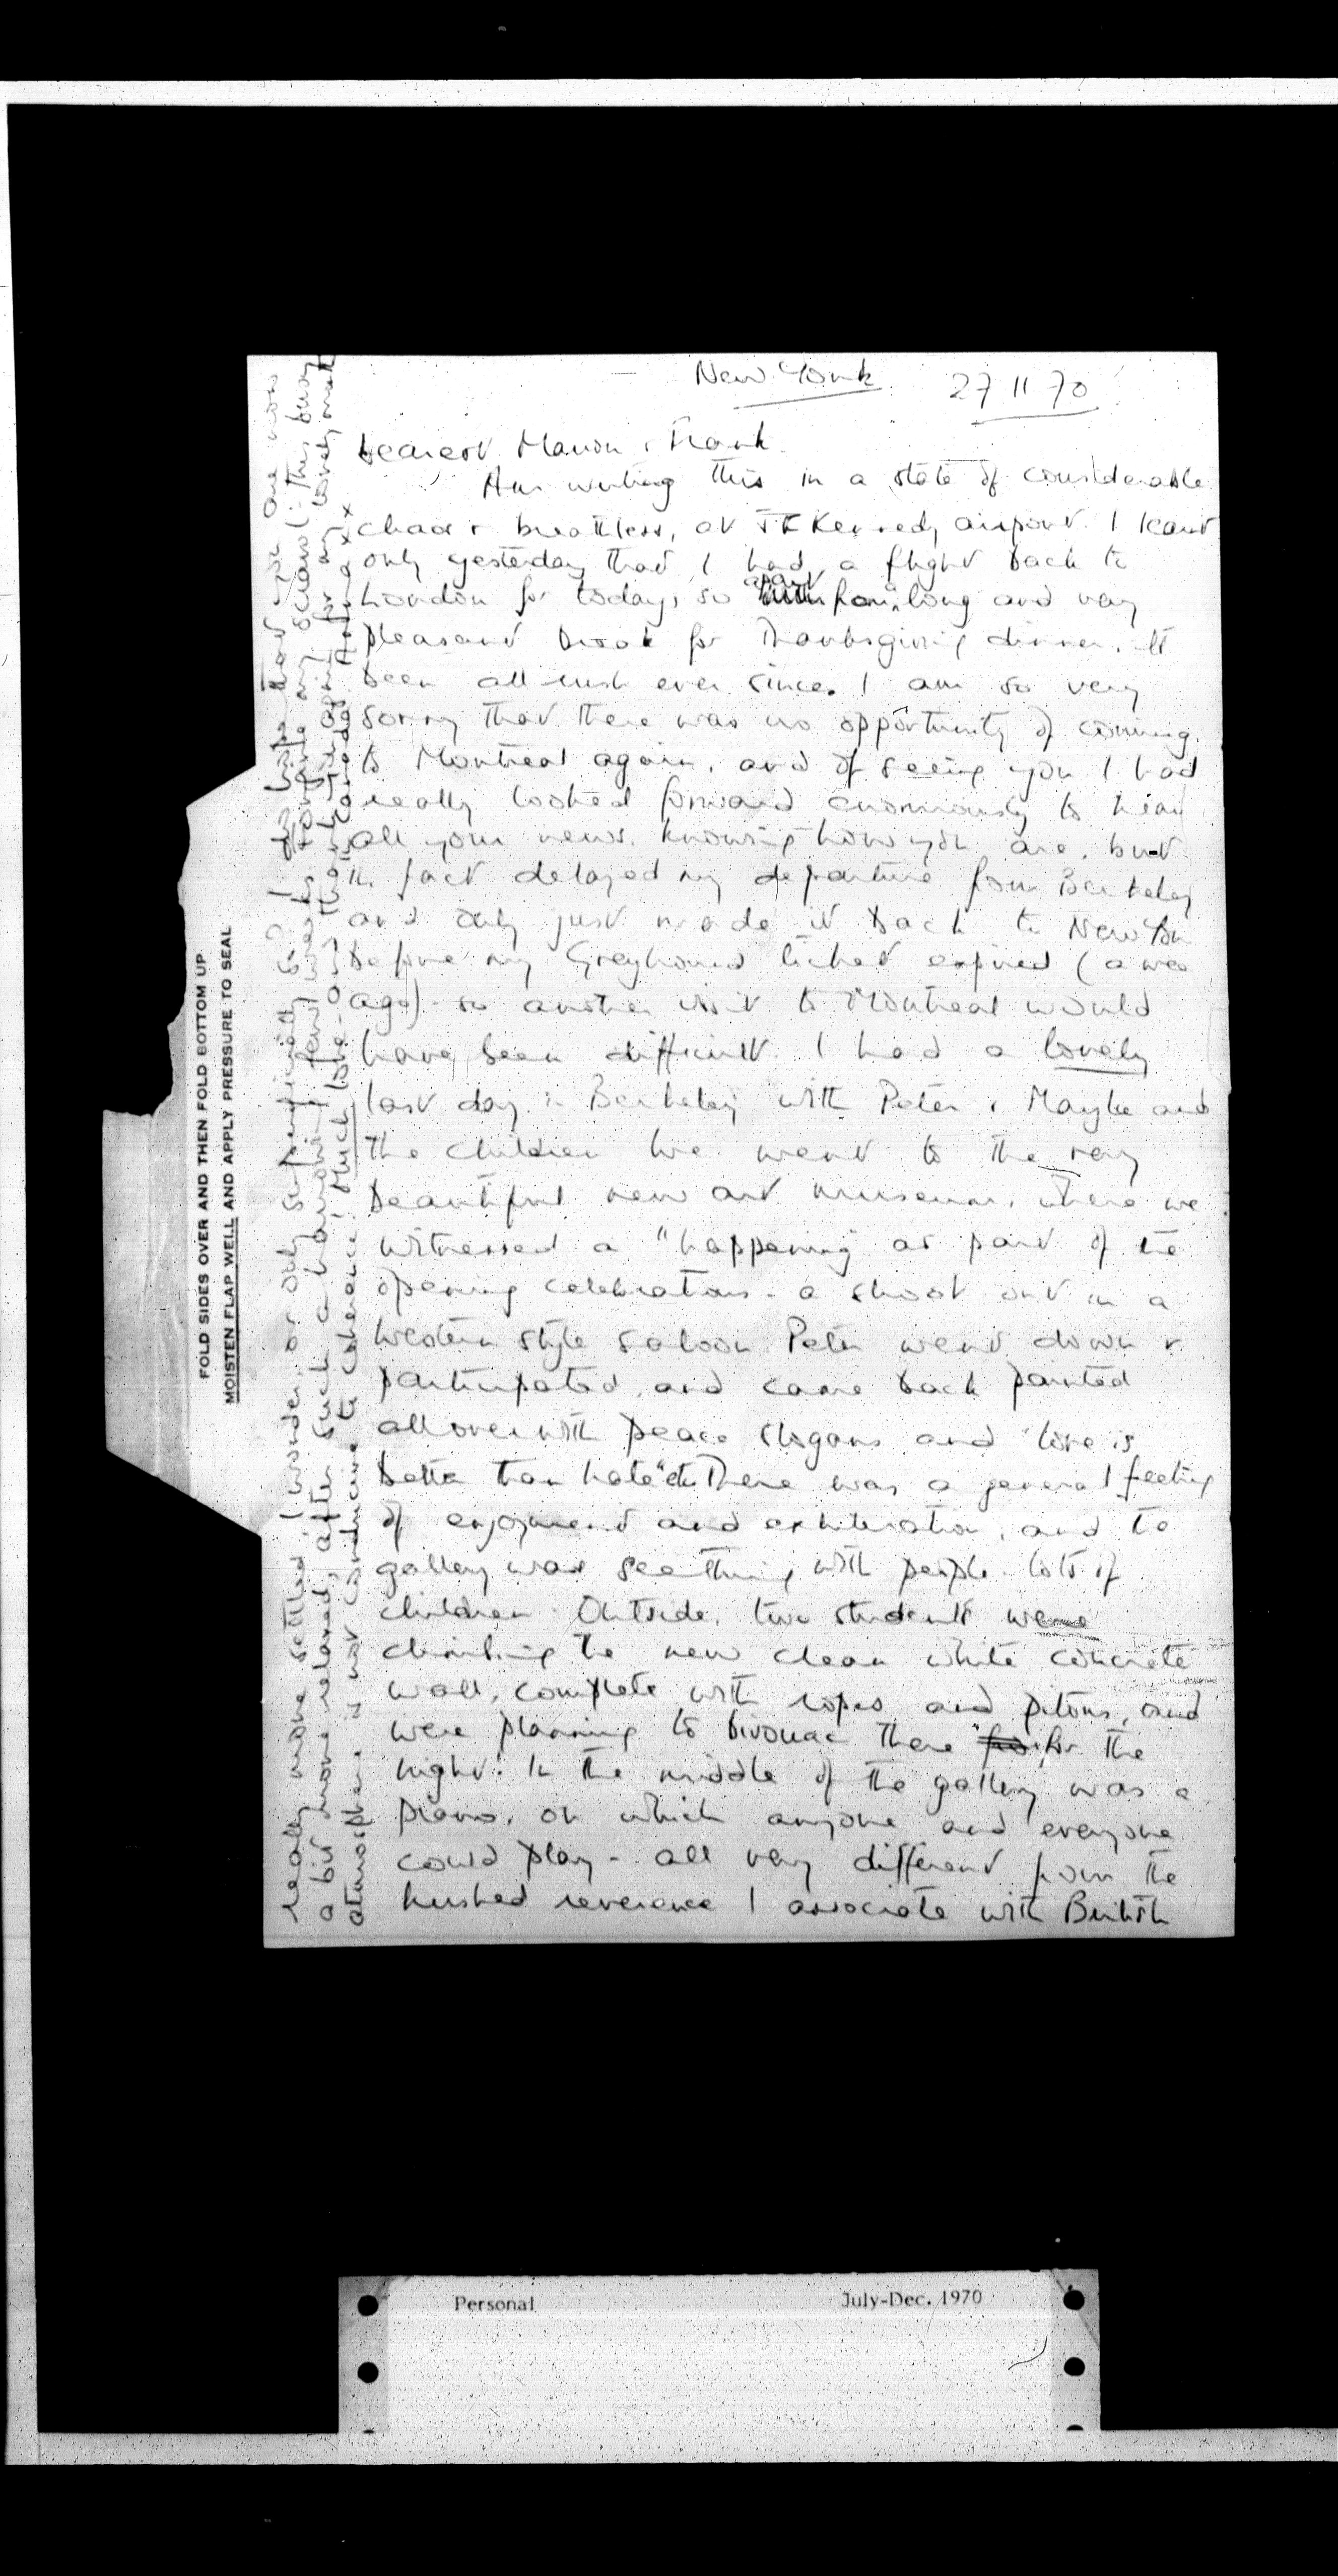 New York 27 11 70
Dearest Marion & Frank.
Am writing this in a state of considerable
chaos & breathless, at JF Kennedy airport. I learnt
only yesterday that I had a flight back to
London for today, so apart from a long and very
pleasant break for Thanksgiving dinner, it's
been all rush ever since. I am so very
sorry that there was no opportunity of coming
to Montreal again, and of seeing you I had
really looked forward enormously to hear
all your news, knowing how you are, but
in fact delayed my departure from Berkeley
and only just made it back to New York
before my Greyhound ticket expired (a week
ago) so another visit to Montreal would
have been difficult. I had a lovely
last day in Berkeley with Peter & and
the children We went to the very
beautiful new art museum, where we
witnessed a "happening" as part of the
opening celebrations - a shoot out in a
Western style saloon Peter went down &
participated, and came back painted
all over with peace slogans and "love is
better than hate" etc. There was a general feeling
of enjoyment and exhileration, and the
gallery was seething with people - lots of
children. Outside, two students were
climbing the new clean white concrete
wall, complete with ropes and pitons, and
were planning to bivouac there for the
night! In the middle of the gallery was a
piano, on which anyone and everyone
could play - all very different from the
hushed reverence I associate with British
really more settled (I wonder, or only superficially so?) I do hope that you are now
a bit more relaxed, after such a harrowing few weeks. Forgive my scrawl: this busy
atmosphere is not conducive to coherence! Much love,
FOLD SIDES OVER AND THEN FOLD BOTTOM UP
MOISTEN FLAP WELL AND APPLY PRESSURE TO SEAL
Personal July-Dec. 1970